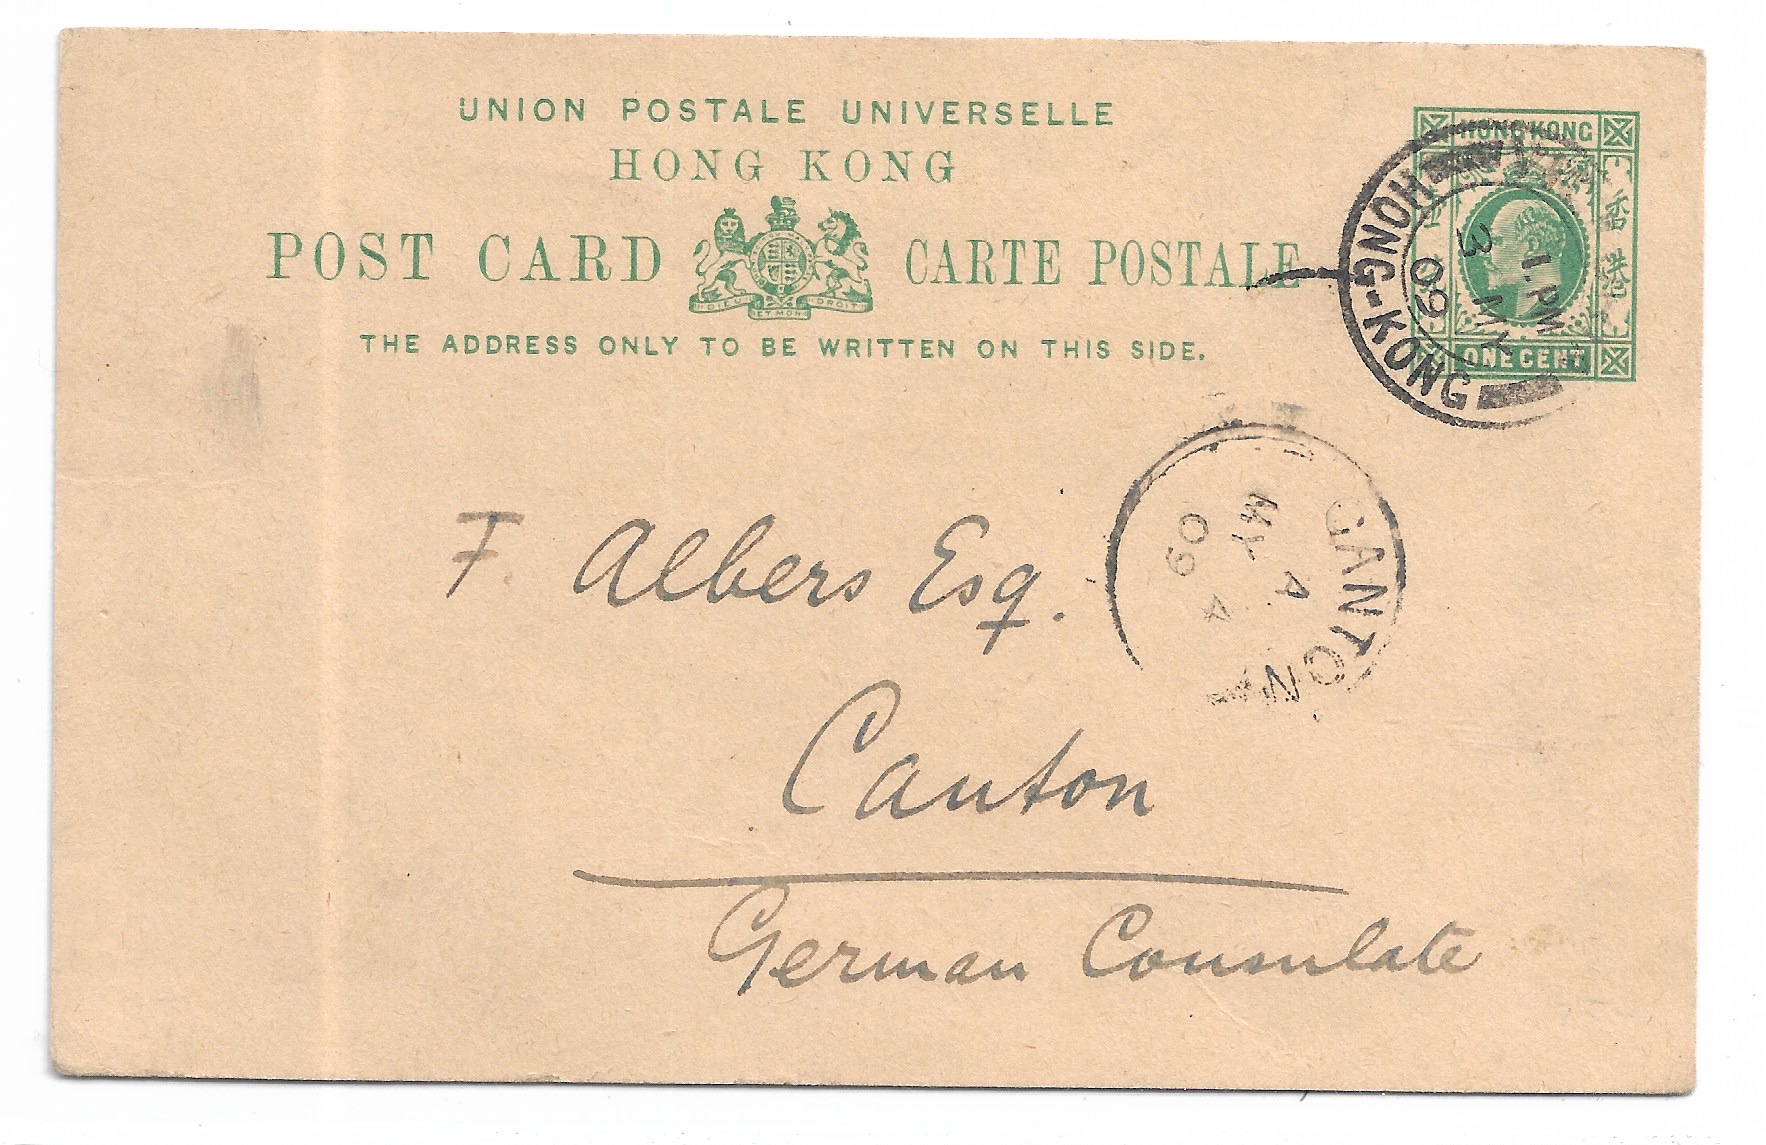 UNION POSTALE UNIVERSELLE
HONG KONG
POST CARD CARTE POSTALE
DIEU ET MON DROIT
THE ADDRESS ONLY TO BE WRITTEN ON THIS SIDE.
HONG KONG
香港
ONE CENT
HONG-KONG
1.PM
3 MY
09
CANTON
A
MY 4
09
F. Albers Esq.
Canton
German Consulate